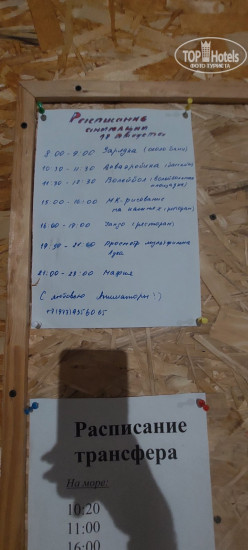 TopHotels
ФОТО ТУРИСТА
Расписание
анимации
18 августа
8:00 - 9:00 Зарядка (около бани)
10:30 - 11:30 Аквааэробика (бассейн)
11:30 - 12:30 Волейбол (Волейбольная
площадка)
15:00 - 16:00 М.К. рисование
на камнях (ресторан)
16:00 - 17:00 (ресторан)
19:30 - 21:00 Просмотр мультфильма
21:00 - 23:00 Мафия
С любовью Аниматоры!)
Расписание
трансфера
На море:
10:20
11:00
16:00